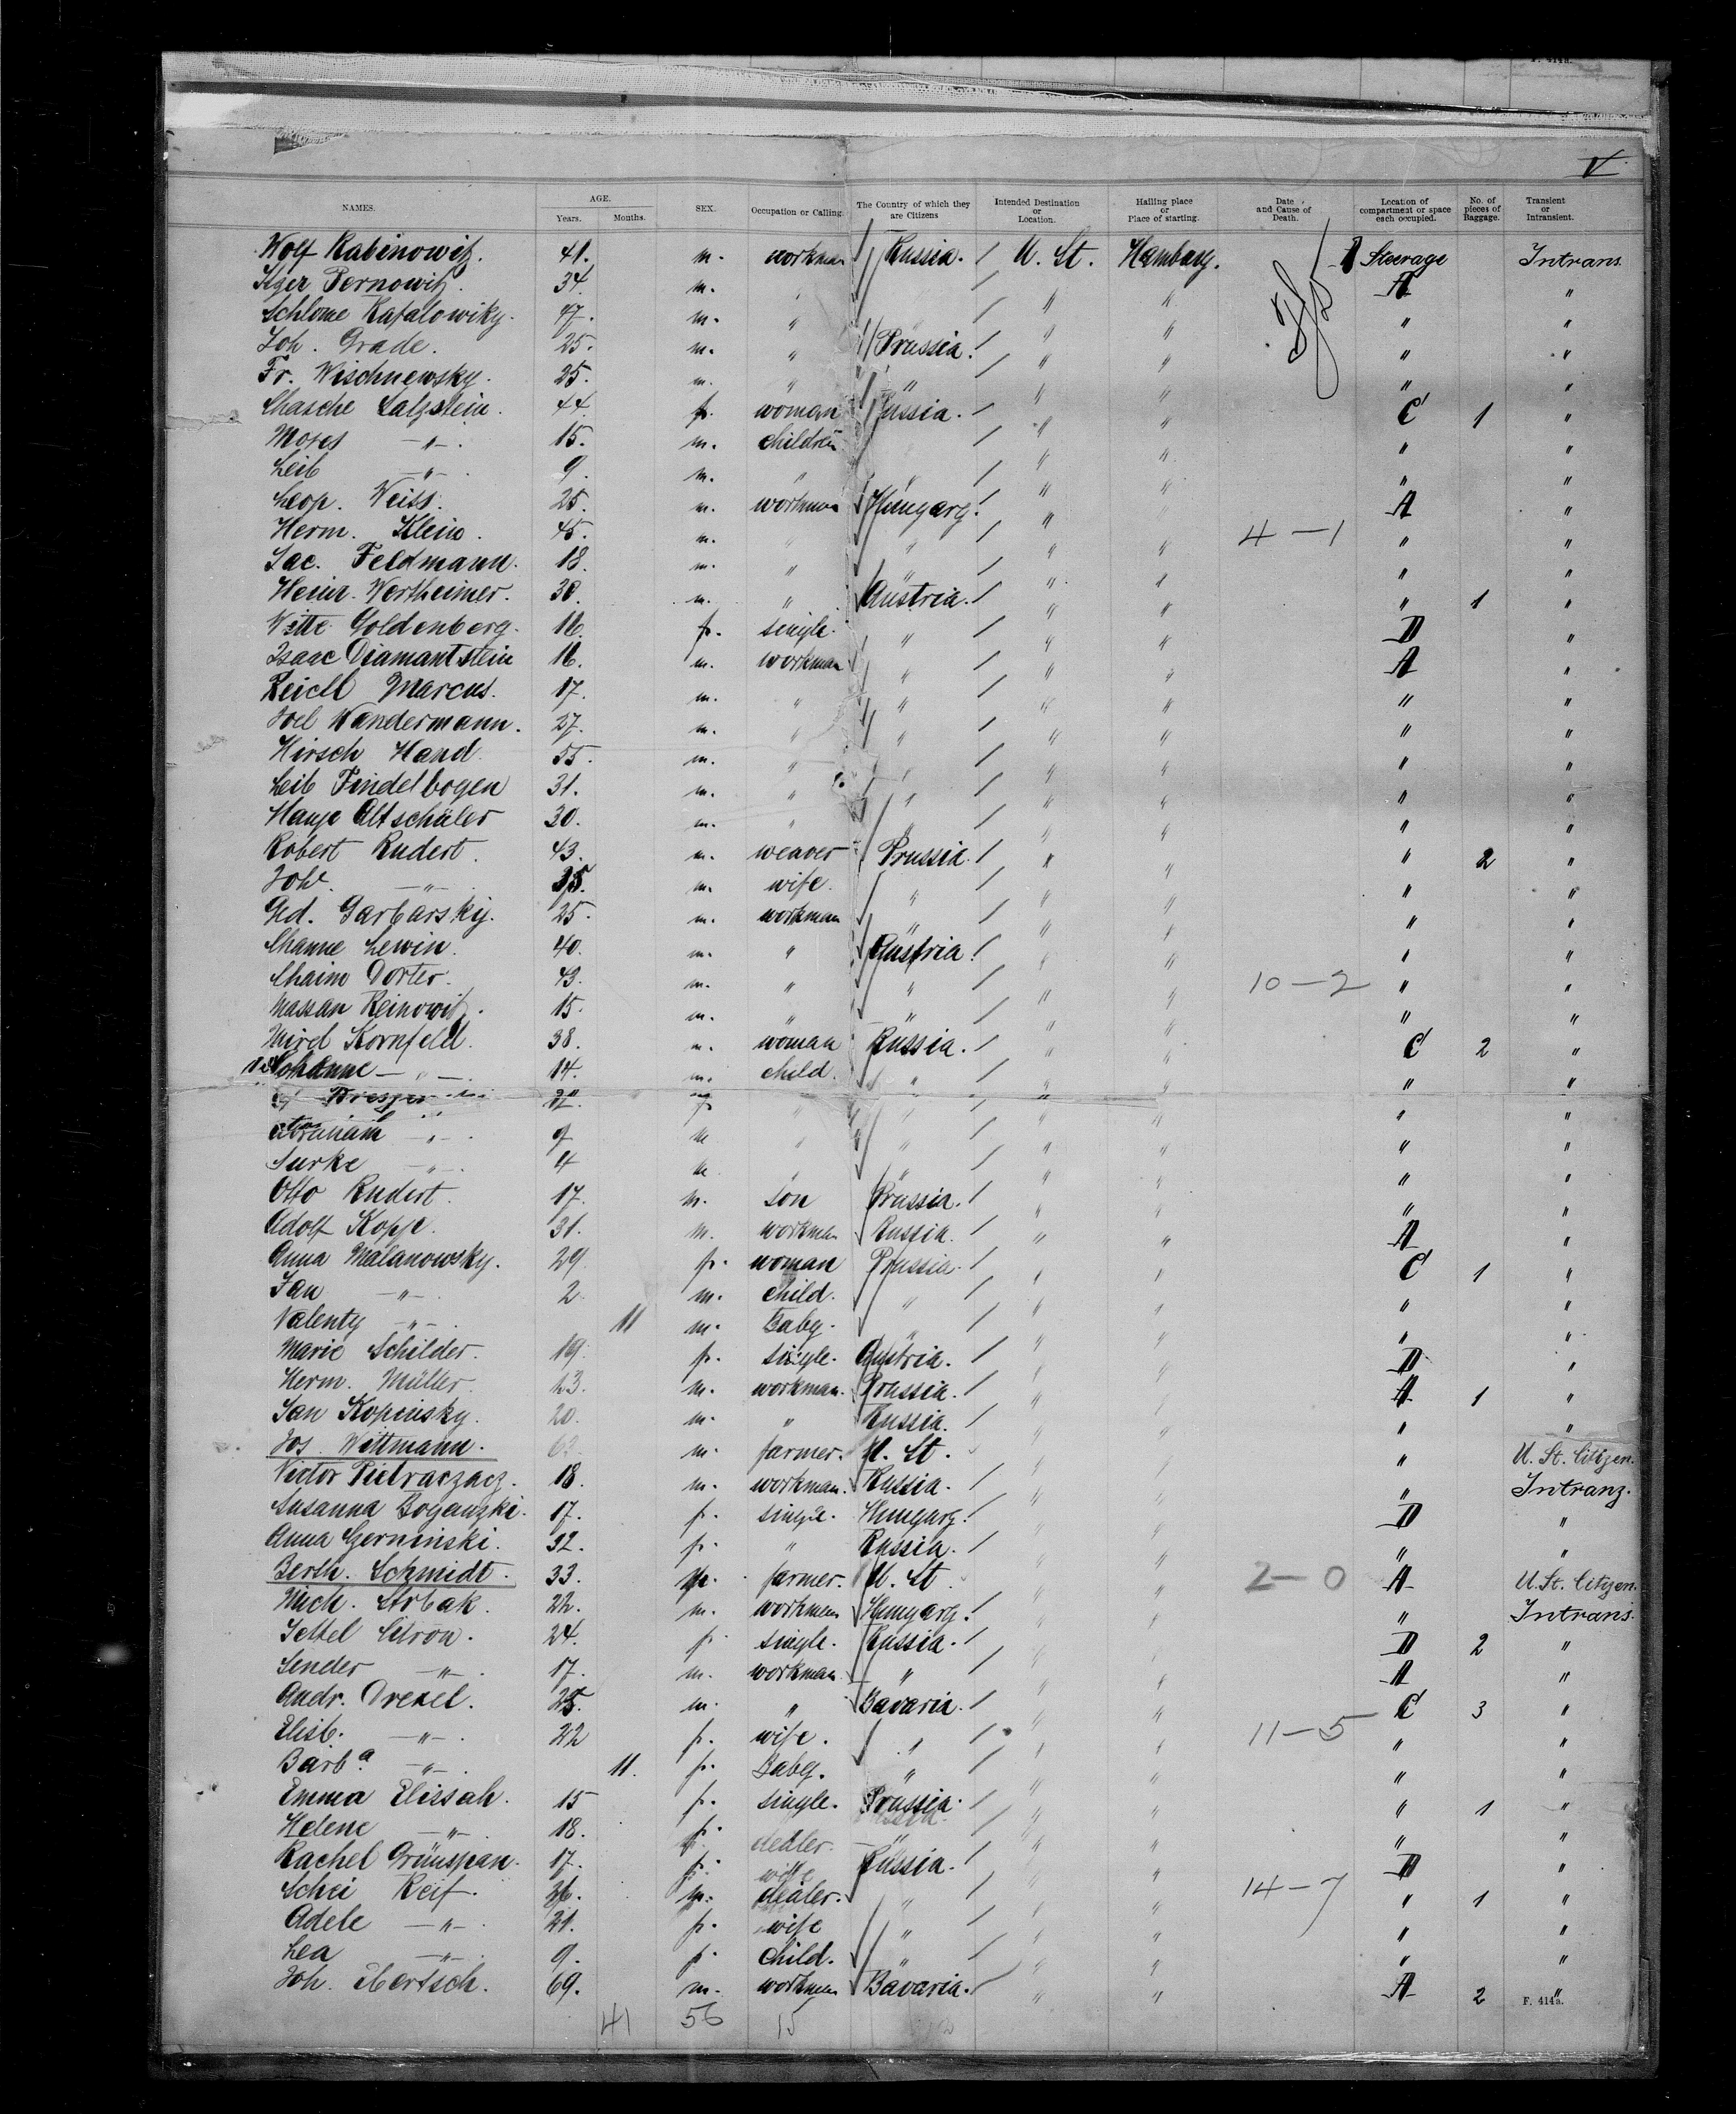 F. 414a.
V
NAMES. AGE. Years. Months. SEX. Occupation or Calling. The Country of which they are Citizens Intended Destination or Location. Hailing place or Place of starting. Date and Cause of Death. Location of compartment or space each occupied. No. of pieces of Baggage. Transient or Intransient.
Wolf Rabinowitz. 41. m. workman Russia. U. St. Hamburg. Steerage Intrans.
Pernowitz. 34. m. " " A "
Schlome 47. m. " " " " "
Joh. Grade. 25. m. " Prussia. " " " "
Fr. Wischnewsky. 25. m. " " " " " "
Chasche Salzstein. 44. f. woman Russia. " " C 1 "
Moses —"—. 15. m. children " " " "
Leib —"—. 9. m. " " " " " "
Leop. Weiss. 25. m. workman Hungary. " " A "
Herm. Klein. 45. m. " " " " 4—1 " "
Jac. Feldmann. 18. m. " " " " " "
Heinr. Wertheimer. 30. m. " Austria. " " " 1 "
Witte Goldenberg. 16. f. single. " " " D "
Isaac Diamantstein 16. m. workman " " " A "
Reichl Marcus. 17. m. " " " " " "
Joel Wandermann. 27. m. " " " " " "
Hirsch Hand 55. m. " " " " " "
Leib Findelbogen 31. m. " " " " " "
Altschüler 30. m. " " " " " "
Robert Rudert. 43. m. weaver Prussia. " " " 2 "
Joh. —"—. 35. m. wife. " " " " "
Ged. Garbarsky. 25. m. workman " " " " "
Channe Lewin. 40. m. " Austria. " " " "
Chaim Dorter. 43. m. " " " " 10—2 " "
Nassan Reinowitz. 15. m. " " " " " "
Mirel Kornfeld. 38. woman Russia. " " C 2 "
—"—. 14. m. child. " " " " "
" " " " " "
Abraham —"—. 9 m " " " " " "
Surke —"—. 4 " " " " " "
Otto Rudert. 17. m. son Prussia. " " " "
Adolf Kopje. 31. m. workman Russia. " " A "
Anna Malanowsky. 29 f. woman Prussia. " " C 1 "
Jan —"—. 2 m. child. " " " " "
Valenty —"—. 11 m. Baby. " " " " "
Marie Schilder. 19. f. single. Austria. " " D "
Herm. Müller. 23. m. workman. Prussia. " " A 1 "
Jan Kopcinsky. 20. m. " Russia. " " " "
Jos. Wittmann. m. farmer. U. St. " " " U. St. Citizen.
Victor Pietraczacz. 18. m. workman. Russia. " " " Intranz.
Susanna 17. f. single. Hungary. " " D "
Anna Gerninski. 32. f. " Russia. " " " "
Berth. Schmidt. 33. farmer. U. St " " 2—0 A U. St. Citizen.
Mich. Strbak. 22. m. workman Hungary. " " " Intrans.
Jettel Citron. 24. f. single. Russia. " " D 2 "
Sender —"—. 17. m. workman " " " A "
Andr. Drexel. 25. m. " Bavaria. " " C 3 "
Elisb. —"—. 22 f. wife. " " " 11—5 " "
Barbª. —"—. 11. f. Baby. " " " " "
Emma Elissah. 15 f. single. Prussia. " " " 1 "
Helene —"—. 18. f. " " " " "
Rachel Grünspan. 17. f. Russia. " " D "
Schei Reif. 26. m. dealer. " " " 14—7 " 1 "
Adele —"—. 21. f. wife " " " " "
Lea —"—. 9. f. child. " " " " "
Joh. Ebertsch. 69. m. workman Bavaria. " " A 2 "
41 56 15
F. 414a.